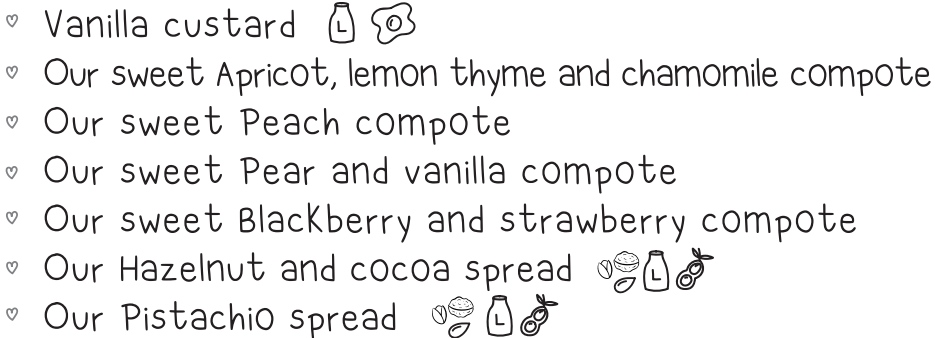 Vanilla custard L
Our sweet Apricot, lemon thyme and chamomile compote
Our sweet Peach compote
Our sweet Pear and vanilla compote
Our sweet Blackberry and strawberry compote
Our Hazelnut and cocoa spread L
Our Pistachio spread L